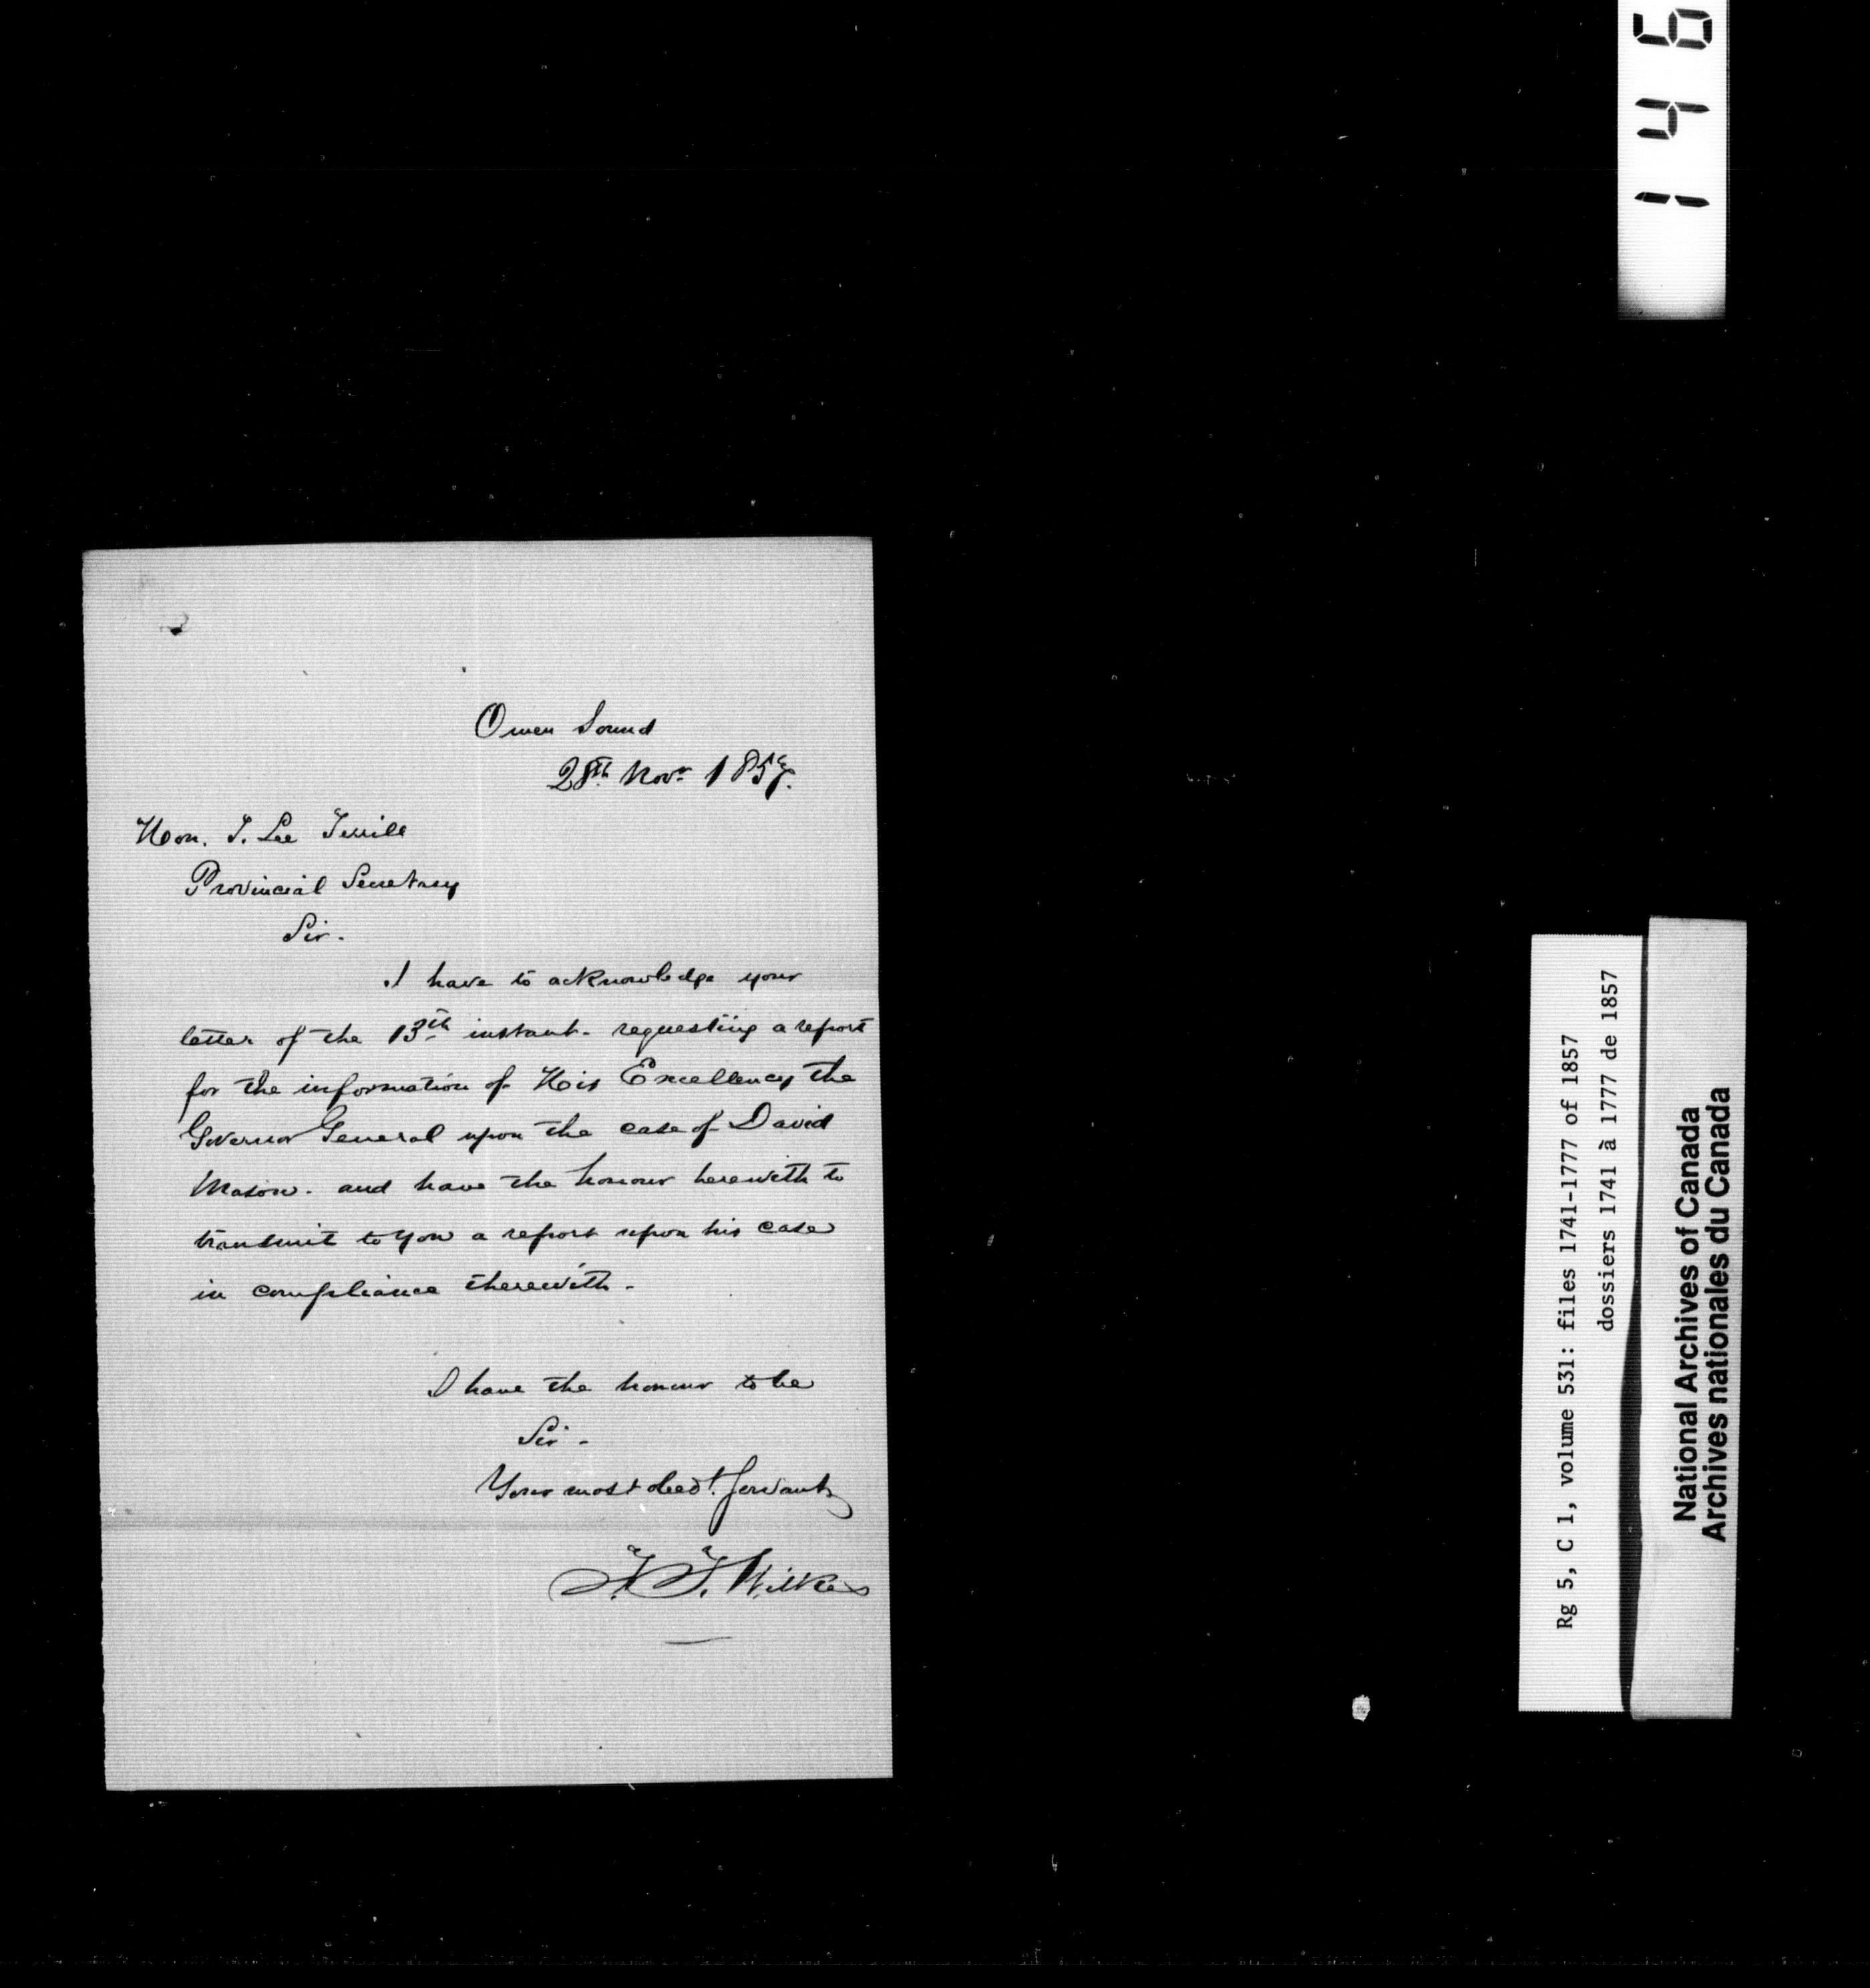 Owen Sound
28th Novr 1857.
Hon. T. Lee Terrill
Provincial Secretary
Sir.
I have to acknowledge your
letter of the 13th instant. requesting a report
for the information of His Excellency the
Governor General upon the case of David
Mason. and have the honour herewith to
transmit to you a report upon his case
in compliance therewith.
I have the honour to be
Sir.
Your most obedt. Servant
F. T. Wilkes
146
Rg 5, C 1, volume 531: files 1741-1777 of 1857
dossiers 1741 à 1777 de 1857
National Archives of Canada
Archives nationales du Canada